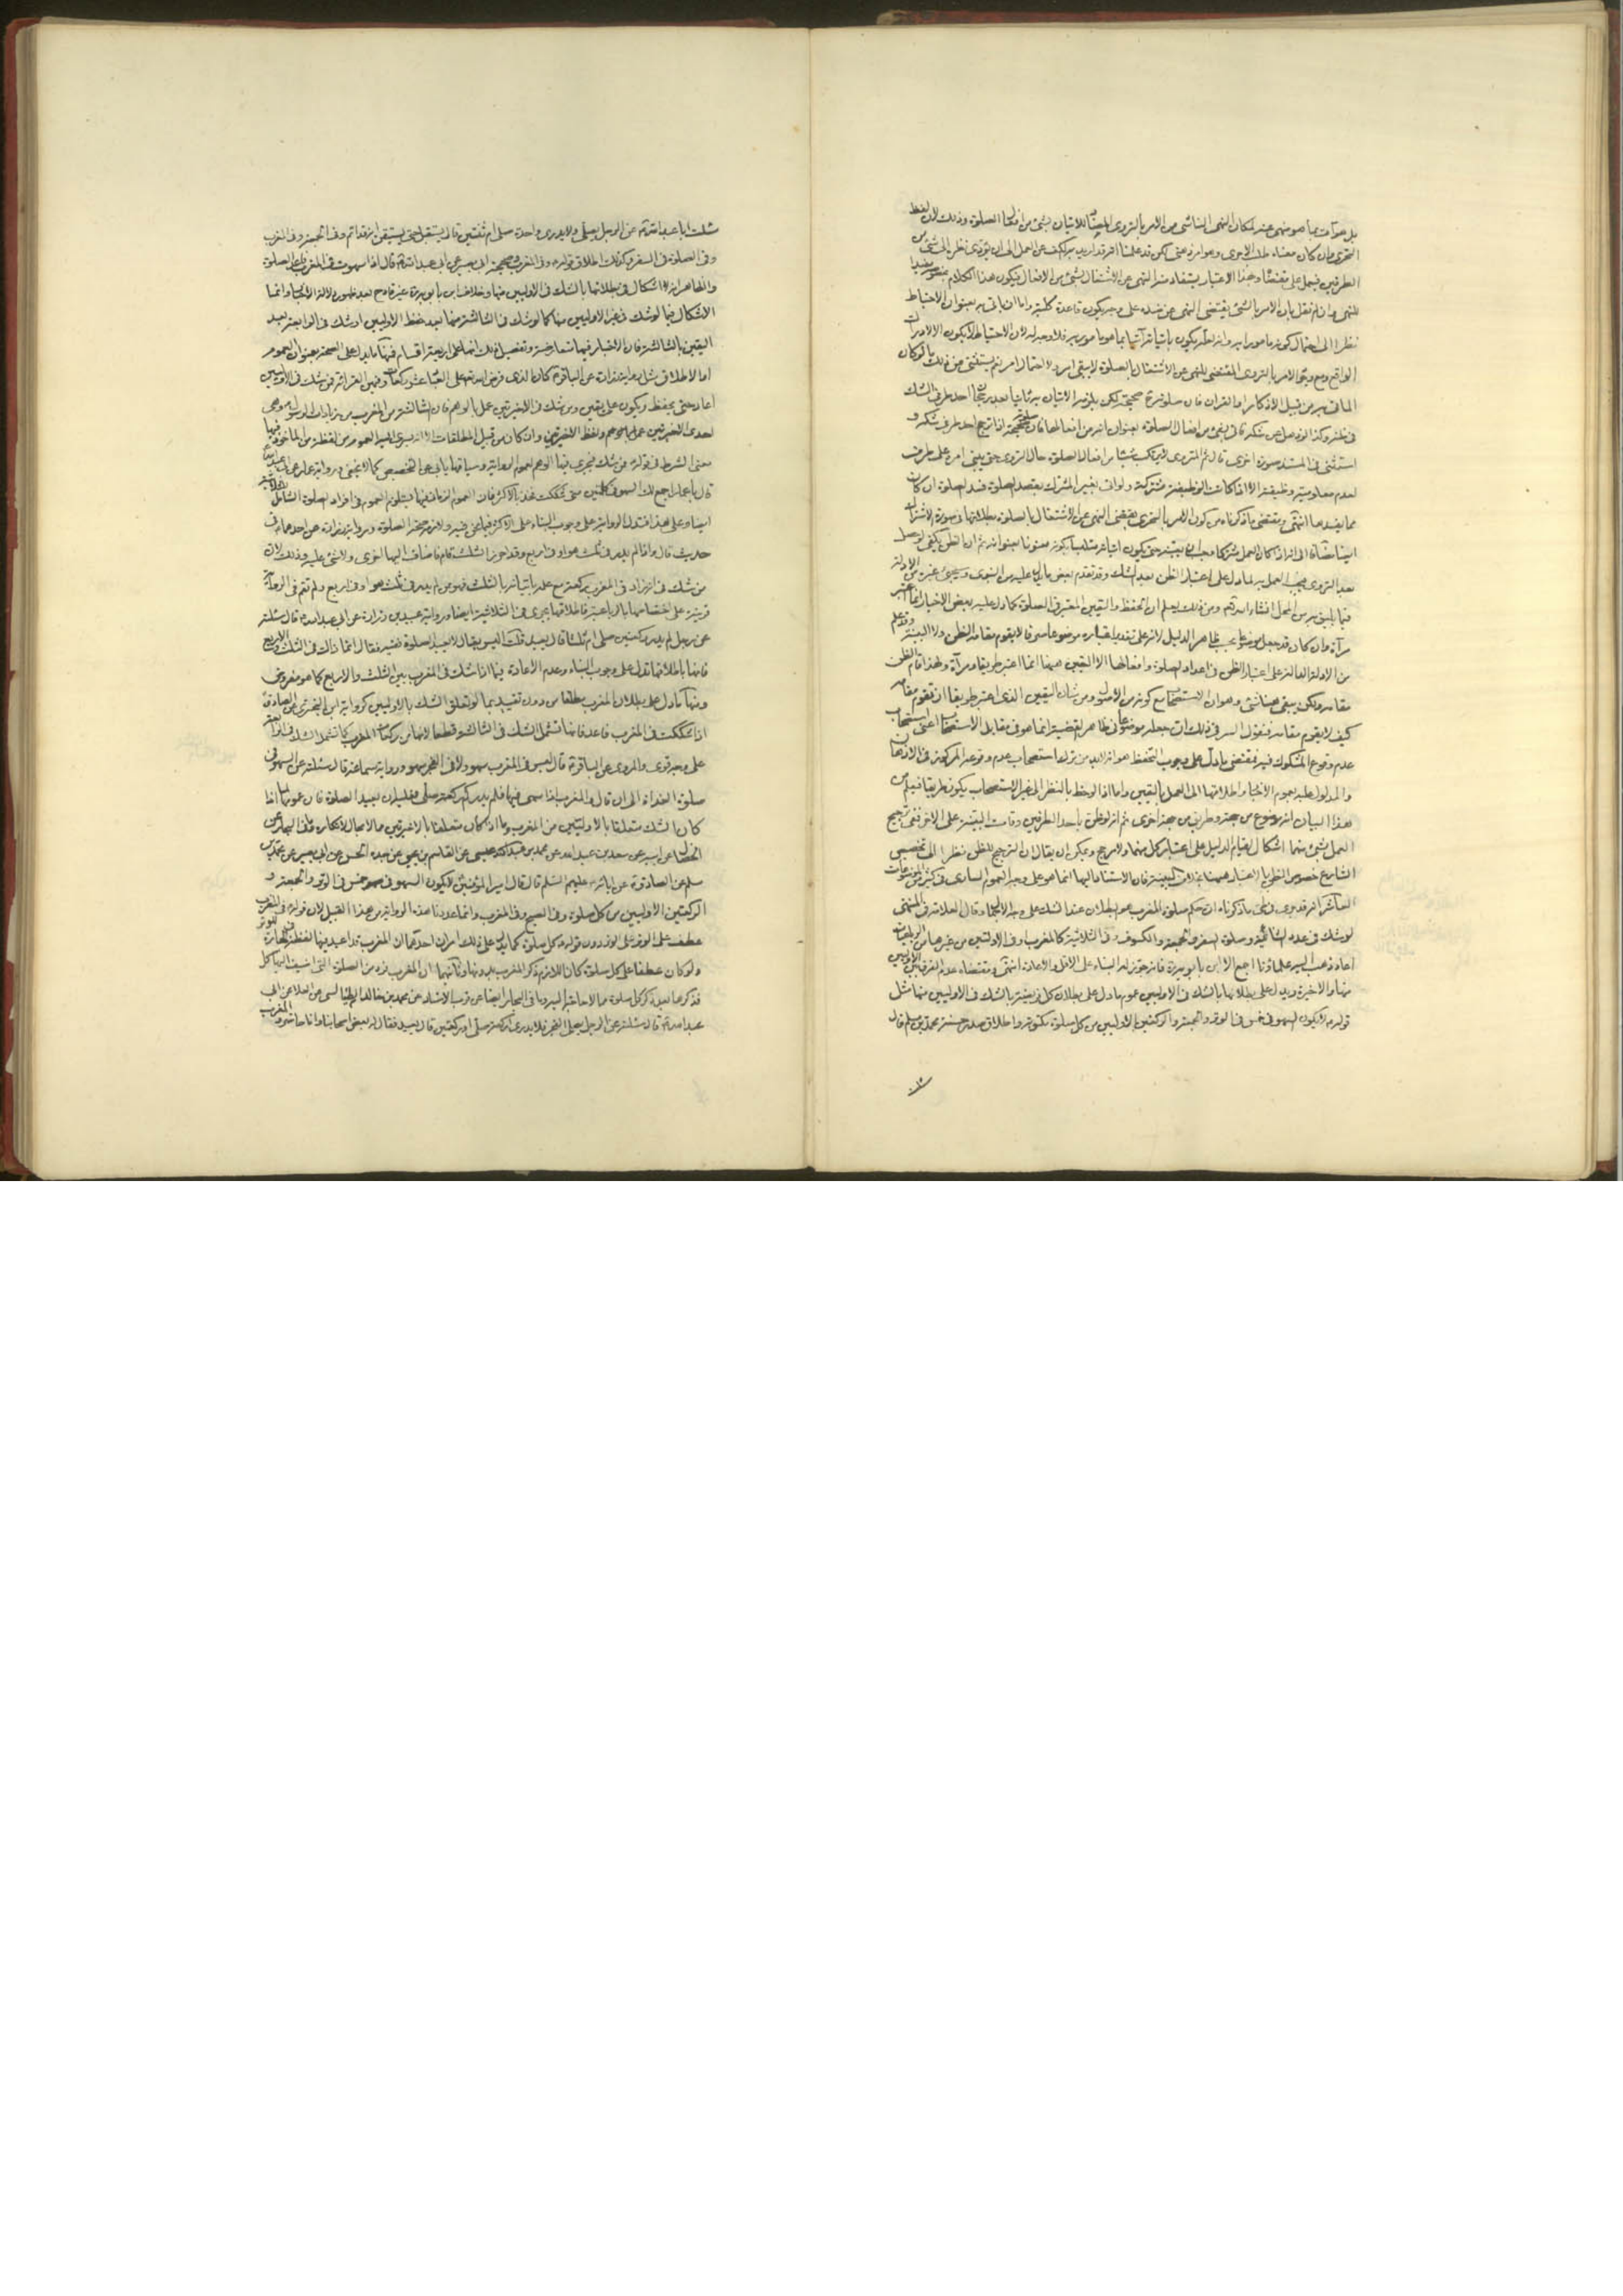 بل هو آت بما هو منهى عنه لمكان النهى الناشى من الامر بالتروى المقتضى للاتيان بشئ من افعال الصلوة وذلك لان لفظ
التحرى وان كان معناه طلب الاحرى وهو امر غنى لكن قد علمنا انه قد اريد به الكف عن العمل الى ان يؤدى نظره الى شئ من
الطرفين فيعمل على مقتضاه وبهذا الاعتبار يستفاد منه النهى عن الاشتغال بشئ من الافعال فيكون هذا الكلام
للنهى وان لم نقل بان الامر بالشئ يقتضى النهى عن ضده على وجه يكون قاعدة كلية واما ان ياتى به بعنوان الاحتياط
نظرا الى احتمال كونه مامورا به وانه لعله يكون باتيانه آتيا بما هو مامور به فلا وجه له لان الاحتياط لا يكون الا لادراك
الواقع ومع وجود الامر بالتروى المقتضى للنهى عن الاشتغال بالصلوة لا يبقى امر ولا احتمال امر نعم يستثنى من ذلك ما لو كان
الماتى به من قبيل الاذكار او القران فان صلوته صحيحة لكن يلزمه الاتيان به ثانيا بعد ترجيح احد طرفى الشك
فى ظنه وكذا لو ذهل عن شكه فاتى بشئ من افعال الصلوة بعنوان انه من افعالها فان صلوته صحيحة اذا ترجح احد طرفى شكه و
استثنى فى المستند صورة اخرى قال ثم المتروى لا يرتكب شيئا من افعال الصلوة حال التروى حتى يبنى امره على طرف
لعدم معلومية وظيفته الا اذا كانت الوظيفة مشتركة ولو اتى بغير المشترك بقصد الصلوة فسد الصلوة ان كان
مما يفسدها انتهى ومقتضى ما ذكرناه من كون الامر بالتحرى يقتضى النهى عن الاشتغال بالصلوة بطلانها فى صورة الاشتراك
ايضا مضافا الى انه اذا كان العمل مشتركا
بعد التروى يجب العمل به لما دل على اعتبار الظن بعد الشك وقد تقدم بعض ما دل عليه من النبوى وسيجئ غيره من الادلة
فيما يليق به من المحل انشاء الله تعالى ومن ذلك يعلم ان الحفظ واليقين المعتبر فى الصلوة كما دل عليه بعض الاخبار انما اعتبر
مرآة وان كان قد جعل موضوعا بحسب ظاهر الدليل لانه على تقدير اعتباره موضوعا صرفا لا يقوم مقامه الظن ولا البينة وقد علم
من الادلة الدالة على اعتبار الظن فى اعداد الصلوة وافعالها ان اليقين هيهنا انما اعتبر طريقا ومرآة ولهذا قام الظن
مقامه ولكن يبقى هيهنا شئ وهو ان الاستصحاب مع كونه من الاصول ومن شان اليقين الذى اعتبر طريقا ان تقوم مقامه
كيف لا يقوم مقامه فنقول السر فى ذلك ان جعله موضوعا فى ظاهر القضية انما هو فى مقابل الاستصحاب اعنى استصحاب
عدم وقوع المشكوك فيه فمقتضى ما دل على وجوب التحفظ هو انه لا بد من ترك استصحاب عدم وقوعه المركوز فى الاذهان
والمدلول عليه بعموم الاخبار واطلاقها الى العمل باليقين واما اذا لوحظ بالنظر الى غير الاستصحاب يكون طريقا فيعلم من
هذا البيان انه موضوع من جهة وطريق من جهة اخرى ثم انه لو ظن باحد الطرفين وقامت البينة على الاخر ففى ترجيح
العمل بشئ منهما اشكال لقيام الدليل على اعتبار كل منهما ولا مرجح ويمكن ان يقال ان الترجيح للظن نظرا الى تخصيص
الشارع خصوص الظن بالاعتبار هيهنا بخلاف البينة فان الاستناد اليها انما هو على وجه العموم السارى فى كثير من الموضوعات
العاشر انه قد جرى فى طى ما ذكرناه ان حكم صلوة المغرب هو البطلان عند الشك على وجه الاجمال وقال العلامة فى المنتهى
لو شك فى عدد الثنائية وصلوة السفر والجمعة والكسوف وفى الثلاثية كالمغرب او فى الاولتين من غيرها من الرباعيات
اعاد ذهب اليه علماؤنا اجمع الا ابن بابويه ره فانه جوز له البناء على الاقل والاعادة انتهى ومقتضاه عدم الفرق بين الاوليين
منها والاخيرة ويدل على بطلانها بالشك فى الاوليين عموم ما دل على بطلان كل فريضة بالشك فى الاوليين منها مثل
قوله ع لا يكون السهو فى خمس فى الوتر والجمعة والركعتين الاوليين من كل صلوة مكتوبة واطلاق صدر حسنة محمد بن مسلم قال
سئلت ابا عبد الله ع عن الرجل يصلى ولا يدرى واحدة صلى ام ثنتين قال يستقبل حتى يستيقن انه قد اتم وفى الجمعة وفى المغرب
وفى الصلوة فى السفر وكذلك اطلاق قوله ع وفى المغرب وصحيحة ابى بصير عن ابى عبد الله ع قال اذا سهوت فى المغرب فاعد الصلوة
والظاهر انه لا اشكال فى بطلانها بالشك فى الاوليين منها وخلاف ابن بابويه ره غير قادح بعد ظهور دلالة الاخبار وانما
الاشكال فيما لو شك فى غير الاوليين منها كما لو شك فى الثالثة منها بعد حفظ الاوليين او شك فى الرابعة بعد
اليقين بالثالثة فان الاخبار فيها متعارضة وتفصيل ذلك انها على اربعة اقسام فمنها ما يدل على الصحة بعنوان العموم
او الاطلاق مثل رواية زرارة عن الباقر ع كان الذى فرض الله تعالى على العباد عشر ركعات وفيهن القرائة فمن شك فى الاوليين
اعاد حتى يحفظ ويكون على يقين ومن شك فى الاخيرتين عمل بالوهم فان الثالثة من المغرب من زيادات الرسول ص وهى
احدى الاخيرتين
معنى الشرط فى قوله من شك فيجرى فيها الوهم لعموم الرواية وسياقها يابى عن التخصيص كما لا يخفى ورواية عمار عن ابى عبد الله ع
قال يا عمار اجمع لك السهو كله فى كلمتين متى شككت فخذ بالاكثر فان العموم الزمان فيها يستلزم العموم فى افراد الصلوة الشامل
ايضا وعلى هذا فتدل الرواية على وجوب البناء على الاكثر فيما نحن فيه ولازمه صحة الصلوة ورواية زرارة عن احدهما ع فى
حديث قال واذا لم يدر فى ثلث هو او فى اربع وقد احرز الثلث قام فاضاف اليها اخرى ولا شئ عليه وذلك لان
من شك فى انه زاد فى المغرب ركعة مع علمه باتيانه بالثلث فهو من لم يدر فى ثلث هو او فى اربع ولم تقم فى الرواية
قرينة على اختصاصها بالرباعية فاطلاقها يجرى فى الثلاثية ايضا ورواية عبيد بن زرارة عن ابى عبد الله ع قال سئلته
عن رجل لم يدر ركعتين صلى ام ثلثا قال يعيد قلت اليس يقال لا يعيد الصلوة فقيه فقال انما ذلك فى الثلث والاربع
فانها باطلاقها تدل على وجوب البناء وعدم الاعادة فيما اذا شك فى المغرب بين الثلث والاربع كما هو مفروض
ومنها ما دل على بطلان المغرب مطلقا من دون تقييد بما لو تعلق الشك بالاوليين كرواية ابن البخترى عن الصادق ع
اذا شككت فى المغرب فاعد فانها تشمل الشك فى الثالثة قطعا لانها من ركعات المغرب كما تشمل الشك فى
على وجه قوى والمروى عن الباقر ع قال ليس فى المغرب سهو ولا فى الفجر سهو ورواية سماعة قال سئلته عن السهو فى
صلوة الغداة الى ان قال والمغرب اذا سهى فيها فلم يدر كم ركعة صلى فعليه ان يعيد الصلوة فان عمومها لما اذا
كان الشك متعلقا بالاوليين من المغرب وما اذا كان متعلقا بالاخيرتين مما لا مجال لانكاره وما فى البحار عن
الخصال عن ابيه عن سعد بن عبد الله عن محمد بن عيسى عن القاسم بن يحيى عن جده الحسن عن ابى بصير عن محمد بن
مسلم عن الصادق ع عن ابائه عليهم السلام قال قال امير المؤمنين ع لا يكون السهو فى خمس فى الوتر والجمعة و
الركعتين الاوليين من كل صلوة وفى الصبح وفى المغرب وانما عددنا هذه الرواية من هذا القبيل لان قوله ع فى المغرب
عطف على الوتر دون قوله ع كل صلوة كما يدل على ذلك امران احدهما ان المغرب قد اعيد فيها لفظة فى الجارة
ولو كان عطفا على كل صلوة كان اللازم ذكر المغرب بدونها وثانيهما ان المغرب فرد من الصلوة التى اضيف اليها كل
فذكرها بعد ذكر كل صلوة مما لا حاجة اليه وما فى البحار ايضا عن قرب الاسناد عن محمد بن خالد الطيالسى عن العلا عن ابى
عبد الله ع قال سئلته عن الرجل يصلى الفجر فلا يدرى اركعة صلى او ركعتين قال يعيد فقال له بعض اصحابنا وانا حاضر والمغرب